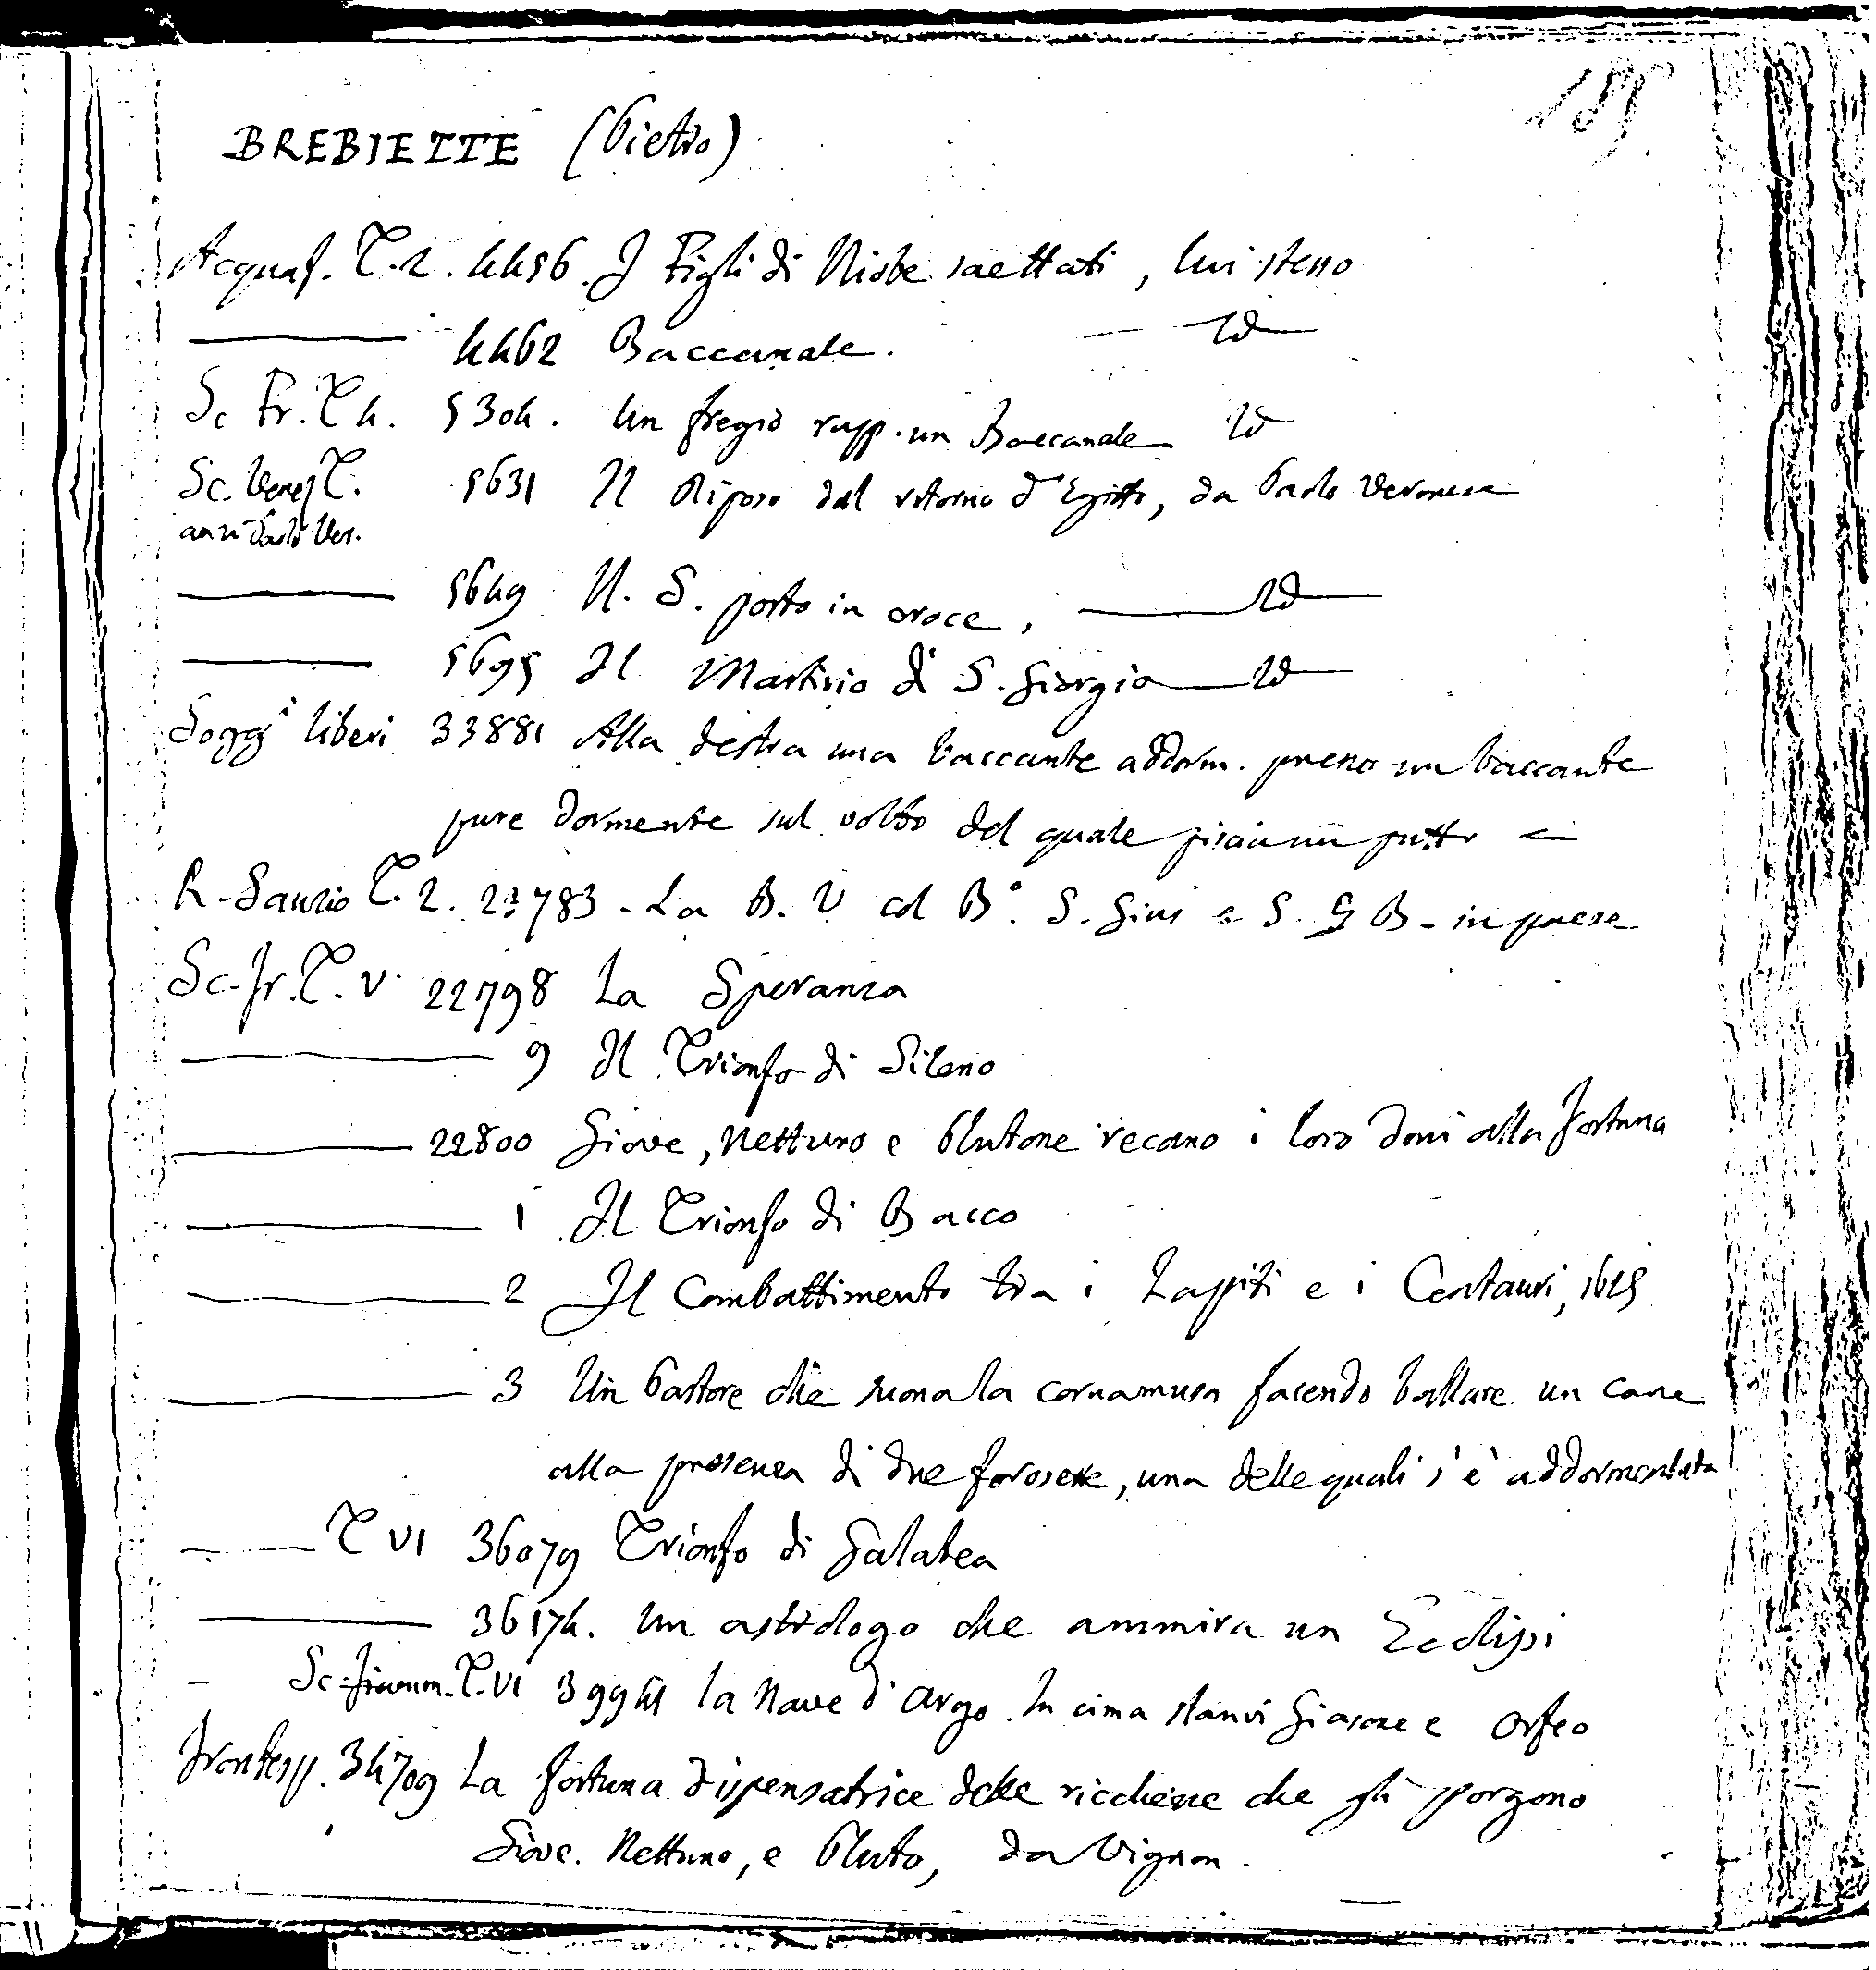 185.
BREBIETTE (Pietro)
Acquaf. T. 2. 4456. I Figli di Niobe saettati, lui stesso
4462 Baccanale. Id
Sc Fr. T 4. 5304. Un fregio rapp. un Baccanale Id
Sc. Venez T. 5631 Il Riposo dal ritorno d'Egitto, da Paolo Veronese
anzi Paolo Ver.
5649 N. S. posto in croce, Id
5695 Il Martirio di S. Giorgio Id
Sogg.i liberi 33881 Alla destra una baccante addorm. presso un baccante
pure dormente sul volto del quale piscia un putto
R. Sanzio T. 2. 783. La B. V col B.o S. Gius e S. G B. in paese
Sc. Fr. T. V. 22798 La Speranza
9 Il Trionfo di Sileno
22800 Giove, Nettuno e Plutone recano i loro doni alla Fortuna
1 Il Trionfo di Bacco
2 Il Combattimento tra i Lapiti e i Centauri, 1625
3 Un Pastore che suona la cornamusa facendo ballare un cane
alla presenza di due forosette, una delle quali s'è addormentata
T VI 36079 Trionfo di Galatea
36174. Un astrologo che ammira un Eclissi
Sc. Fiamm. T. VI 39941 la Nave d'Argo. In cima stanvi Giasone e Orfeo
Frontesp. 34709 La Fortuna dispensatrice delle ricchezze che gli porgono
Giove. Nettuno, e Pluto, da Vignon.